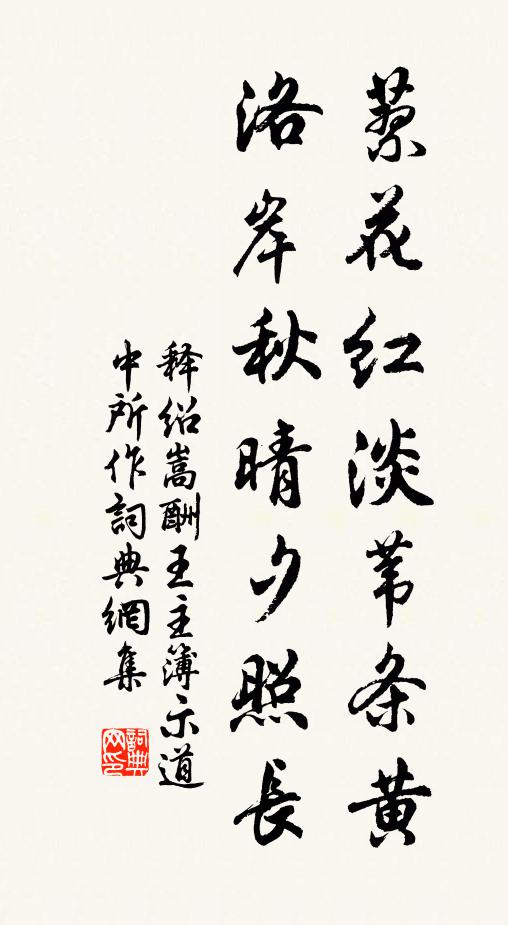 蓼花红淡苇条黄
洛岸秋晴夕照長
释绍嵩酬王主簿示道
中所作詞典網集
詞典网印